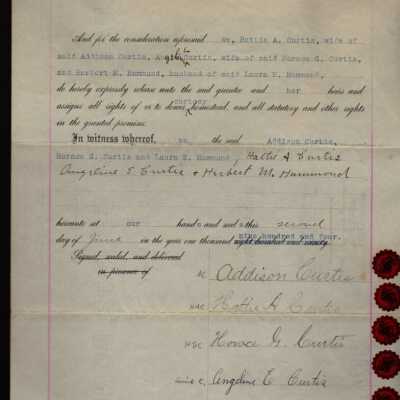 And for the consideration aforesaid we, Hattie A. Curtis, wife of
said Addison Curtis, Curtis, wife of said Horace G. Curtis,
and Herbert M. Hammond, husband of said Laura E. Hammond,
do hereby expressly release unto the said grantee and her heirs and
assigns all rights of us to dower, curtesy, homestead, and all statutory and other rights
in the granted premises.
In witness whereof, we the said Addison Curtis,
Horace G. Curtis and Laura E. Hammond, Hattie A Curtis
Angeline E Curtis & Herbert M. Hammond
hereunto set our hands and seals this second
day of June in the year one thousand eight hundred and ninety nine hundred and four.
Signed, sealed, and delivered
in presence of
Addison Curtis
HAC Hattie A Curtis
HGC Horace G. Curtis
C. Angeline E. Curtis